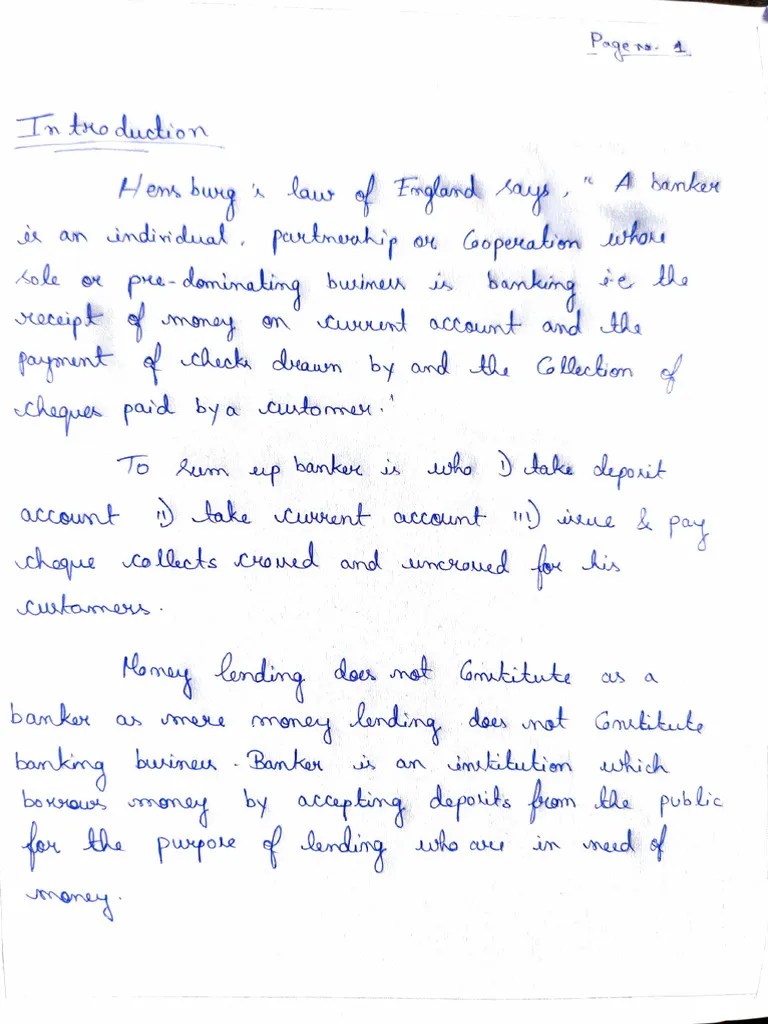 Page no. 1
Introduction
Hensburg's law of England says, " A banker
is an individual, partnership or Cooperation whose
sole or pre-dominating business is banking i.e the
receipt of money on current account and the
payment of checks drawn by and the Collection of
cheques paid by a customer."
To sum up banker is who i) take deposit
account ii) take current account iii) issue & pay
cheque collects crossed and uncrossed for his
custamers.
Money lending does not Constitute as a
banker as mere money lending does not Constitute
banking business. Banker is an institution which
borrows money by accepting deposits from the public
for the purpose of lending who are in need of
money.